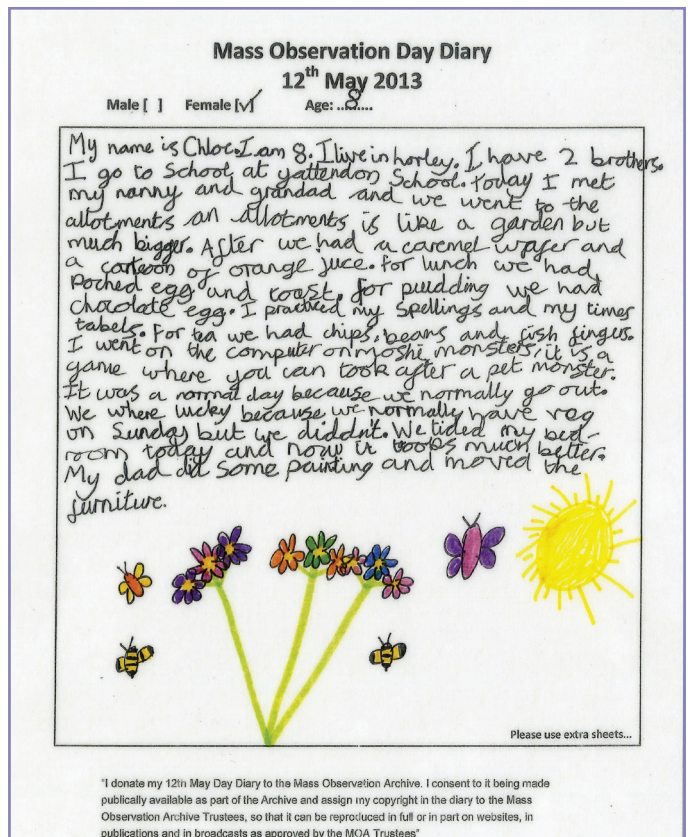 Mass Observation Day Diary
12th May 2013
Male [ ] Female [✓] Age: ...8......
My name is Chloe. I am 8. I live in horley. I have 2 brothers.
I go to School at yattendon School. Today I met
my nanny and grandad and we went to the
allotments an allotments is like a garden but
much bigger. After we had a caremel wafer and
a cartoon of orange juce. For lunch we had
Poched egg and toast. for pudding we had
chocolate egg. I practiced my spellings and my times
tabels. For tea we had chips, beans and fish fingus.
I went on the computer on moshi monsters, it is a
game where you can look after a pet monster.
It was a normal day because we normally go out.
We where lucky because we normally have
on Sunday but we diddn't. We tided my bed-
room today and now it looks much better.
My dad did some painting and moved the
furniture.
Please use extra sheets...
"I donate my 12th May Day Diary to the Mass Observation Archive. I consent to it being made
publically available as part of the Archive and assign my copyright in the diary to the Mass
Observation Archive Trustees, so that it can be reproduced in full or in part on websites, in
publications and in broadcasts as approved by the MOA Trustees"